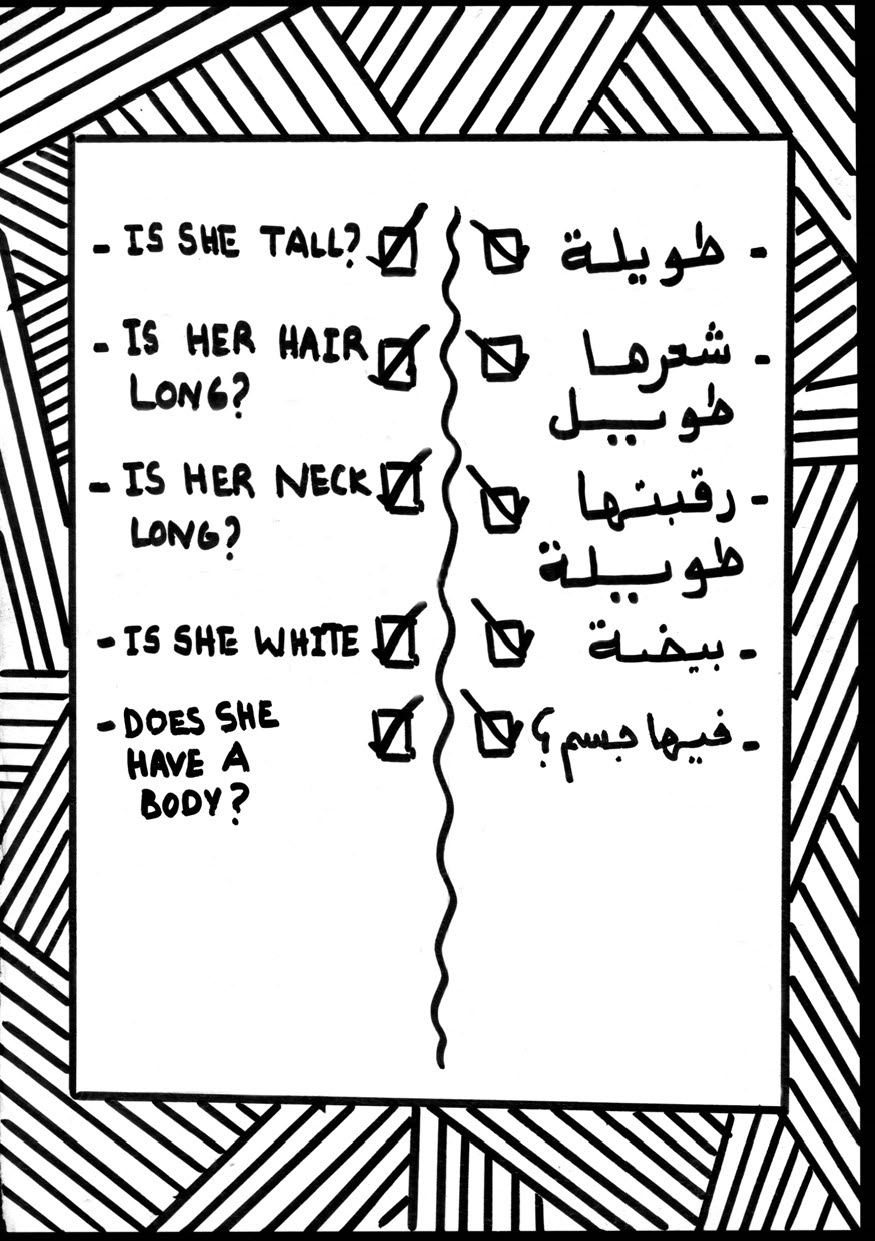 - IS SHE TALL?
- IS HER HAIR
LONG?
- IS HER NECK
LONG?
- IS SHE WHITE
- DOES SHE
HAVE A
BODY?
- طويلة
- شعرها
طويل
- رقبتها
طويلة
- بيضة
- فيها جسم؟